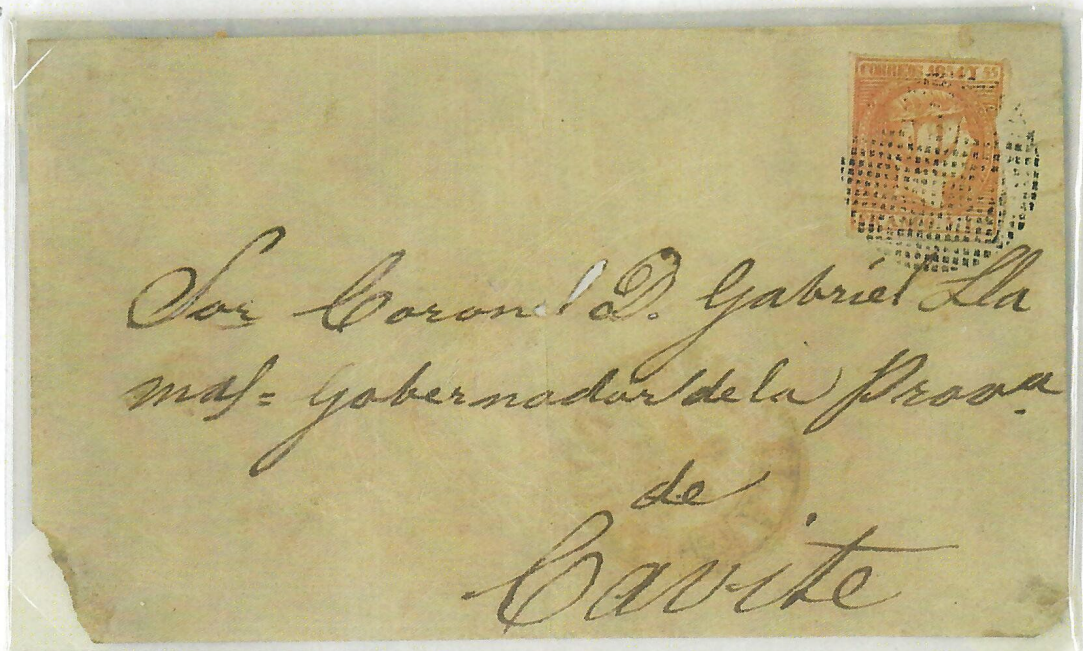 CORREOS 1854 Y 55
Sor Coronel D. Gabriel Lla
mas= Gobernador de la Prova.
de
Cavite